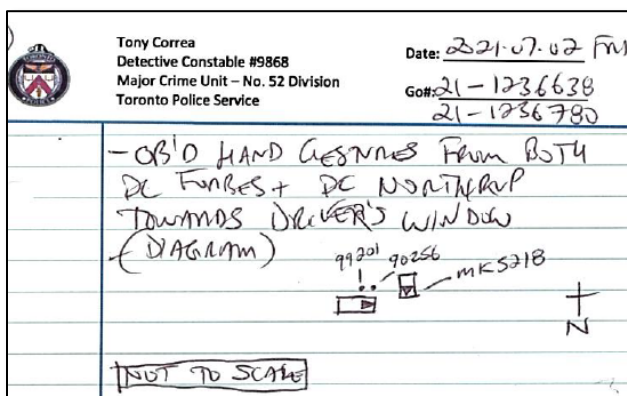 Tony Correa
Detective Constable #9868
Major Crime Unit – No. 52 Division
Toronto Police Service
Date: 2021.07.02 FRI
Go#: 21-1236638
21-1236780
- OB'D HAND GESTURES FROM BOTH
DC FORBES + DC NORTHRUP
TOWARDS DRIVER'S WINDOW
(DIAGRAM)
99201 90256 MKS218
N
NOT TO SCALE